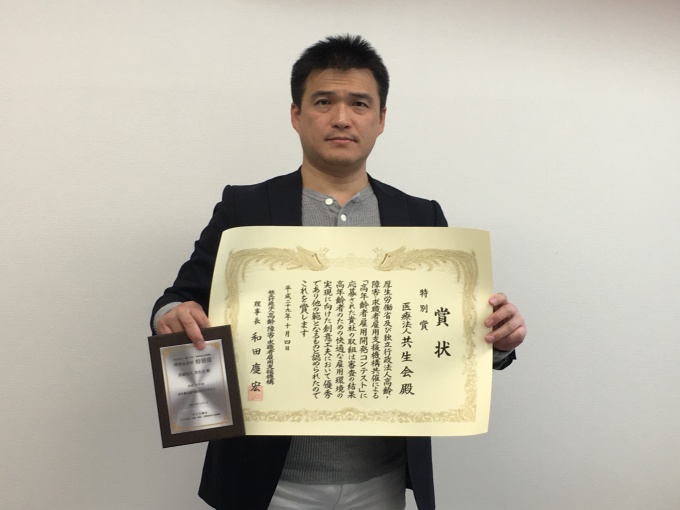 賞状
特別賞
医療法人共生会殿
厚生労働省及び独立行政法人高齢・
障害・求職者雇用支援機構共催による
「高年齢者雇用開発コンテスト」に
応募された貴社の取組は審査の結果
高年齢者のための快適な雇用環境の
実現に向けた創意工夫において優秀
であり他の範となるものと認められたので
これを賞します
平成二十九年十月四日
独立行政法人高齢・障害・求職者雇用支援機構
理事長 和田慶宏
特別賞